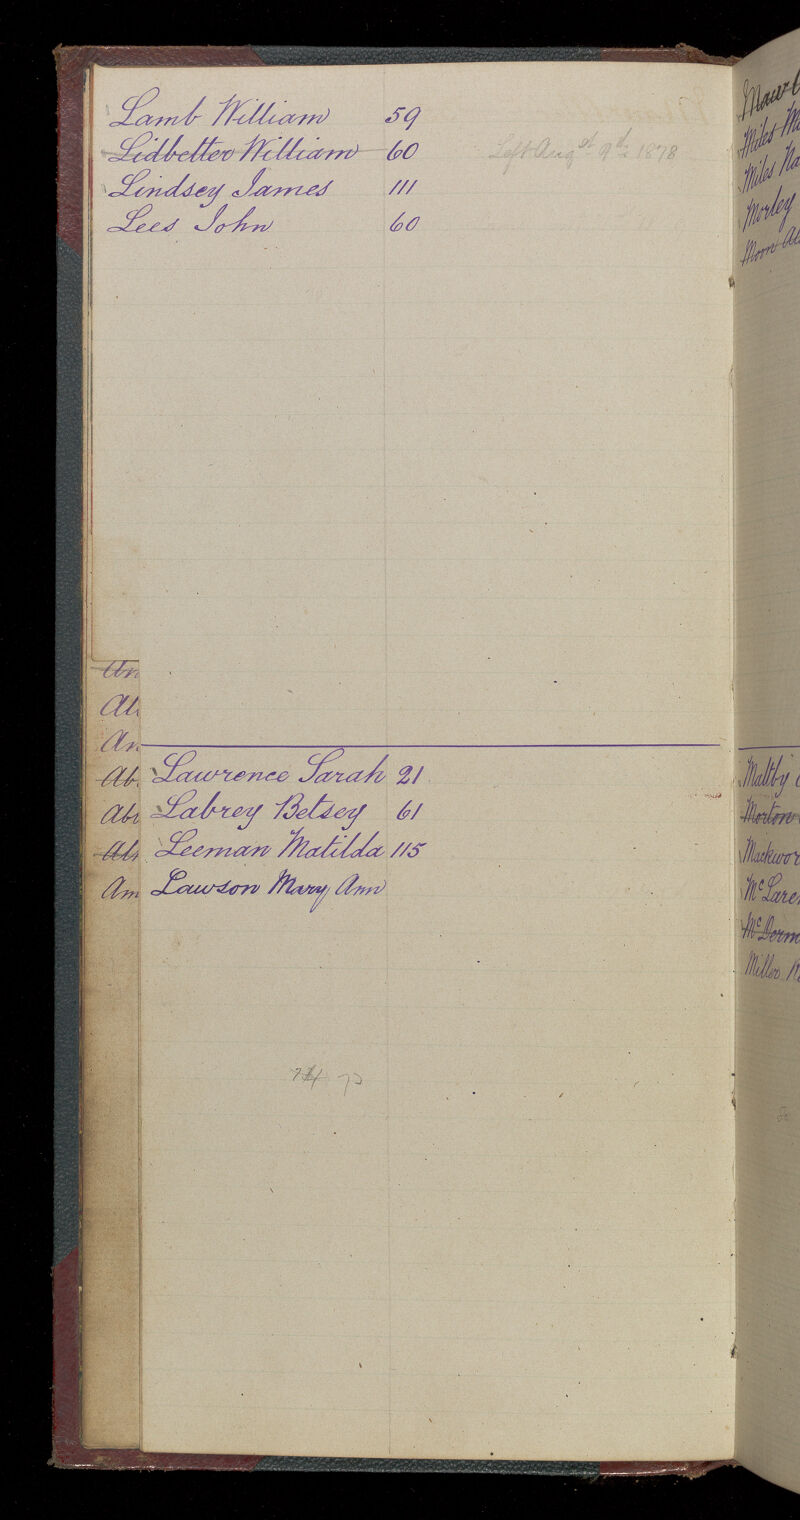 Lamb William 59
Lidbetter William 60 Left Augst 9th 1878
Lindsey James 111
Lees John 60
Lawrence Sarah 21
Labrey Betsey 61
Leeman Matilda 115
Lawson Mary Ann
Miles
Miles
Morley
Moon
Maltby
Morton
McLaren
Miller